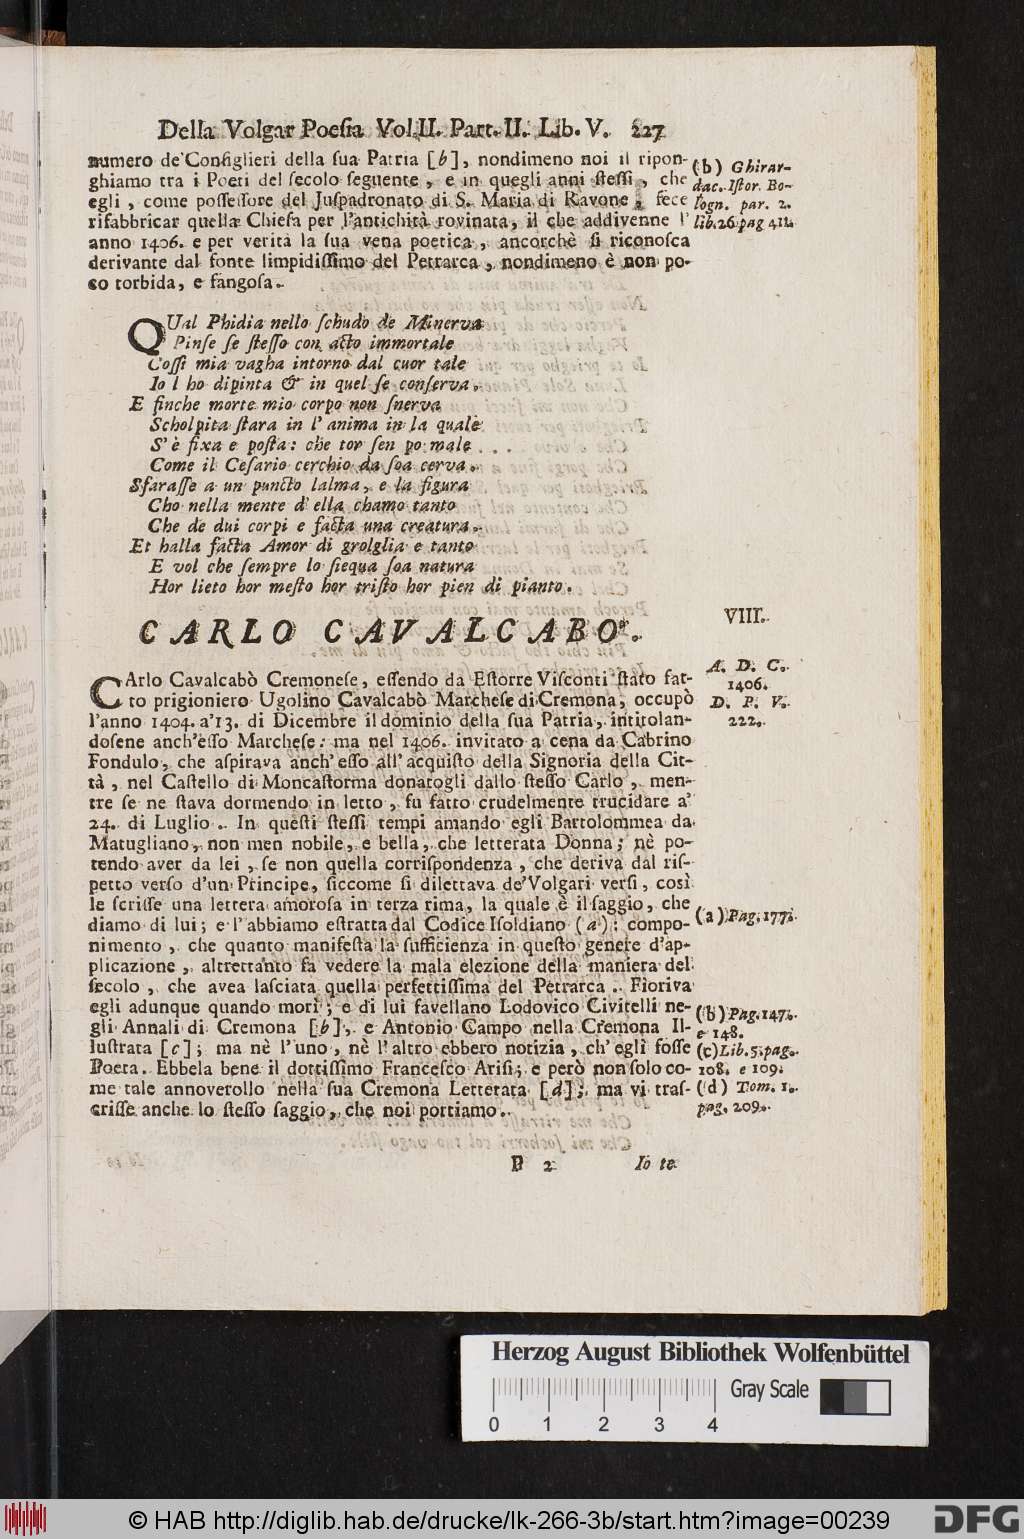 Della Volgar Poesia Vol.II. Part. II. Lib. V. 227
numero de'Consiglieri della sua Patria [b], nondimeno noi il ripon-
ghiamo tra i Poeti del secolo seguente, e in quegli anni stessi, che
egli, come possessore del Juspadronato di S. Maria di Ravone, fece
rifabbricar quella Chiesa per l'antichità rovinata, il che addivenne l'
anno 1406. e per verità la sua vena poetica, ancorchè si riconosca
derivante dal fonte limpidissimo del Petrarca, nondimeno è non po-
co torbida, e fangosa.
(b) Ghirar-
dac. Istor. Bo-
logn. par. 2.
lib.26 pag 411.
QUal Phidia nello schudo de Minerva
Pinse se stesso con acto immortale
Cossì mia vagha intorno dal cuor tale
Io l ho dipinta & in quel se conserva.
E finche morte mio corpo non snerva
Scholpita stara in l' anima in la quale
S' è fixa e posta: che tor sen po male . . .
Come il Cesario cerchio da soa cerva.
Sfarasse a un puncto lalma, e la figura
Cho nella mente d' ella chamo tanto
Che de dui corpi e facta una creatura.
Et halla facta Amor di grolglia e tanto
E vol che sempre lo siequa soa natura
Hor lieto hor mesto hor tristo hor pien di pianto.
CARLO CAVALCABO'.
VIII.
A. D. C.
1406.
D. P. V.
222.
CArlo Cavalcabò Cremonese, essendo da Estorre Visconti stato fat-
to prigioniero Ugolino Cavalcabò Marchese di Cremona, occupò
l'anno 1404. a'13. di Dicembre il dominio della sua Patria, intitolan-
dosene anch'esso Marchese: ma nel 1406. invitato a cena da Cabrino
Fondulo, che aspirava anch' esso all' acquisto della Signoria della Cit-
tà, nel Castello di Moncastorma donatogli dallo stesso Carlo, men-
tre se ne stava dormendo in letto, fu fatto crudelmente trucidare a'
24. di Luglio. In questi stessi tempi amando egli Bartolommea da
Matugliano, non men nobile, e bella, che letterata Donna; nè po-
tendo aver da lei, se non quella corrispondenza, che deriva dal ris-
petto verso d'un Principe, siccome si dilettava de'Volgari versi, così
le scrisse una lettera amorosa in terza rima, la quale è il saggio, che
diamo di lui; e l'abbiamo estratta dal Codice Isoldiano (a): compo-
nimento, che quanto manifesta la sufficienza in questo genere d'ap-
plicazione, altrettanto fa vedere la mala elezione della maniera del
secolo, che avea lasciata quella perfettissima del Petrarca. Fioriva
egli adunque quando morì; e di lui favellano Lodovico Civitelli ne-
gli Annali di Cremona [b], e Antonio Campo nella Cremona Il-
lustrata [c]; ma nè l'uno, nè l'altro ebbero notizia, ch'egli fosse
Poeta. Ebbela bene il dottissimo Francesco Arisi; e però non solo co-
me tale annoverollo nella sua Cremona Letterata [d]; ma vi tras-
crisse anche lo stesso saggio, che noi portiamo.
(a) Pag. 177.
(b) Pag.147.
e 148.
(c) Lib. 5. pag.
108. e 109.
(d) Tom. 1.
pag. 209.
P 2 Io te
Herzog August Bibliothek Wolfenbüttel
Gray Scale
0 1 2 3 4
© HAB http://diglib.hab.de/drucke/lk-266-3b/start.htm?image=00239
DFG